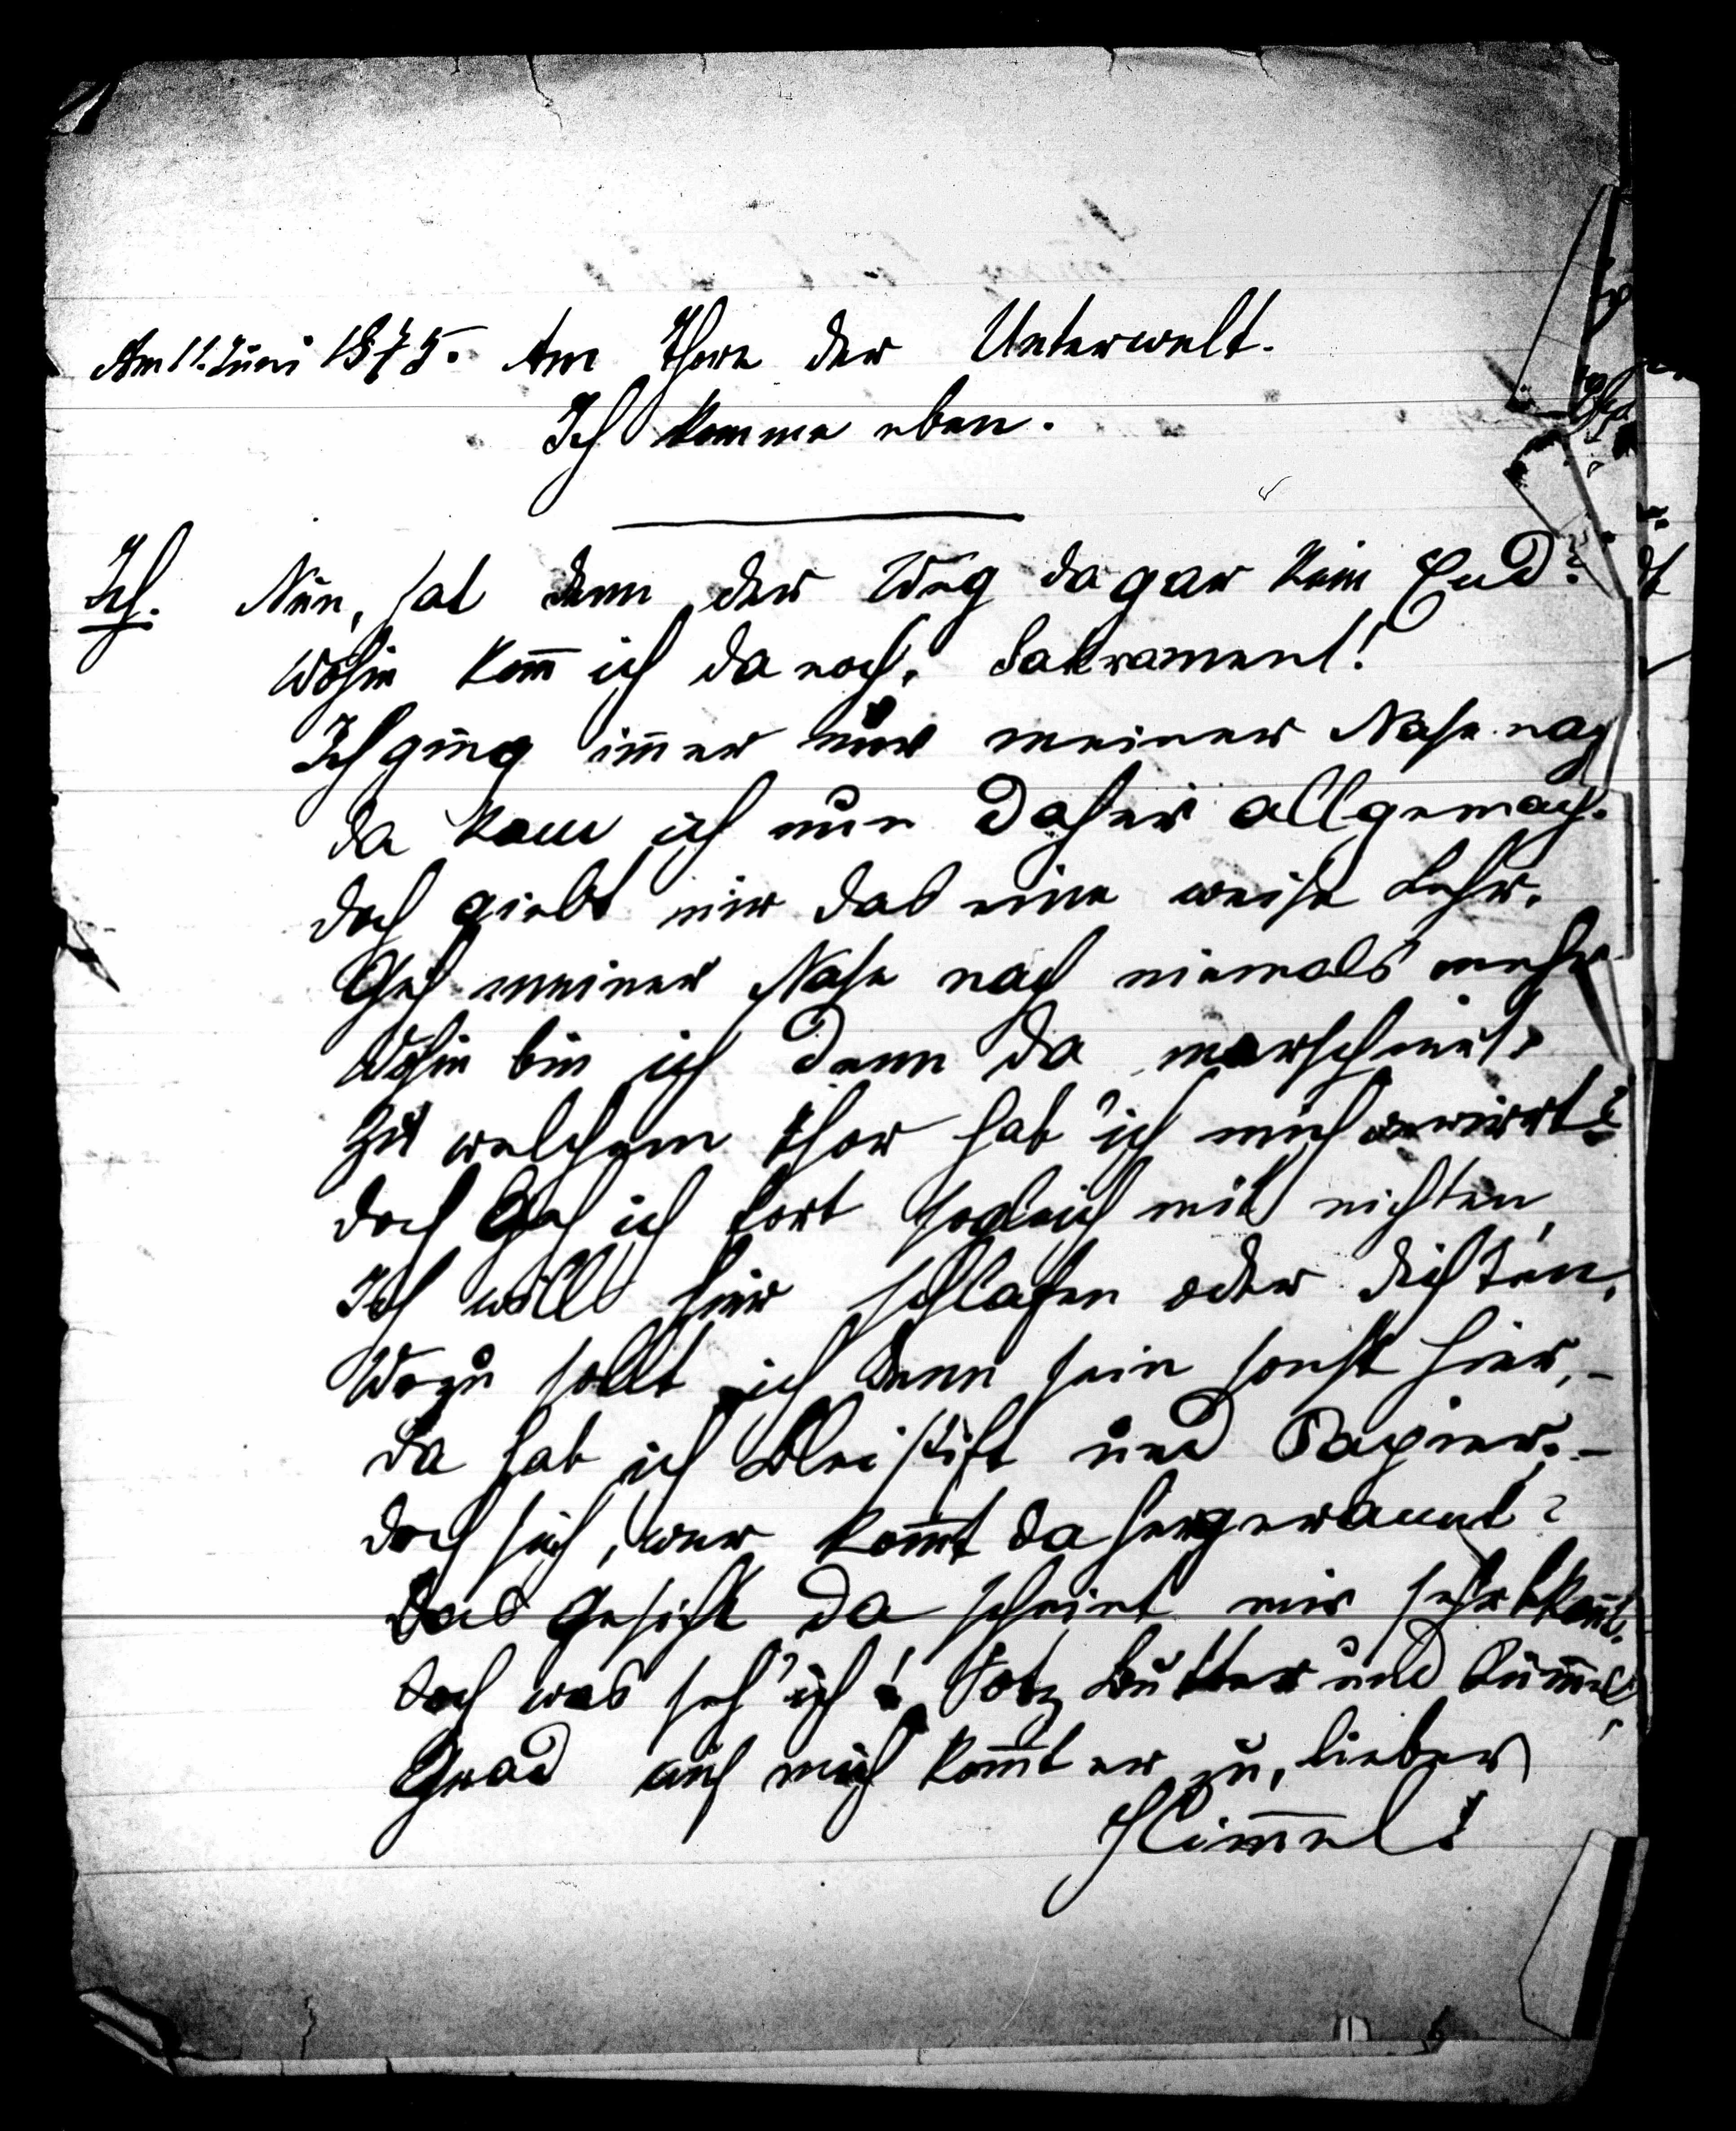 Am 11. Juni 1875. Am Thore der Unterwelt.
Ich komme eben.
Ich. Nun, hat denn der Weg da gar kein End?
Wohin kom̅ ich da noch, Sakrament!
Ich ging im̅er nur meiner Nase nach
da kam ich nun daher allgemach.
doch giebt mir das eine weise Lehr.
Geh meiner Nase nach niemals mehr
Wohin bin ich denn da marschirt?
Zu welchem Thor hab' ich mich verwirrt?
doch Geh ich fort sogleich mit nichten,
Ich will hier schlafen oder dichten,
Wozu sollt ich denn sein sonst hier, –
da hab ich Bleistift und Papier. –
doch sieh, wer kom̅t da hergerannt?
Das Gesicht da scheint mir sehr bekan̅t.
doch was seh' ich! Potz Butter und Küm̅el,
Grad auf mich kom̅t er zu, lieber
Him̅el!